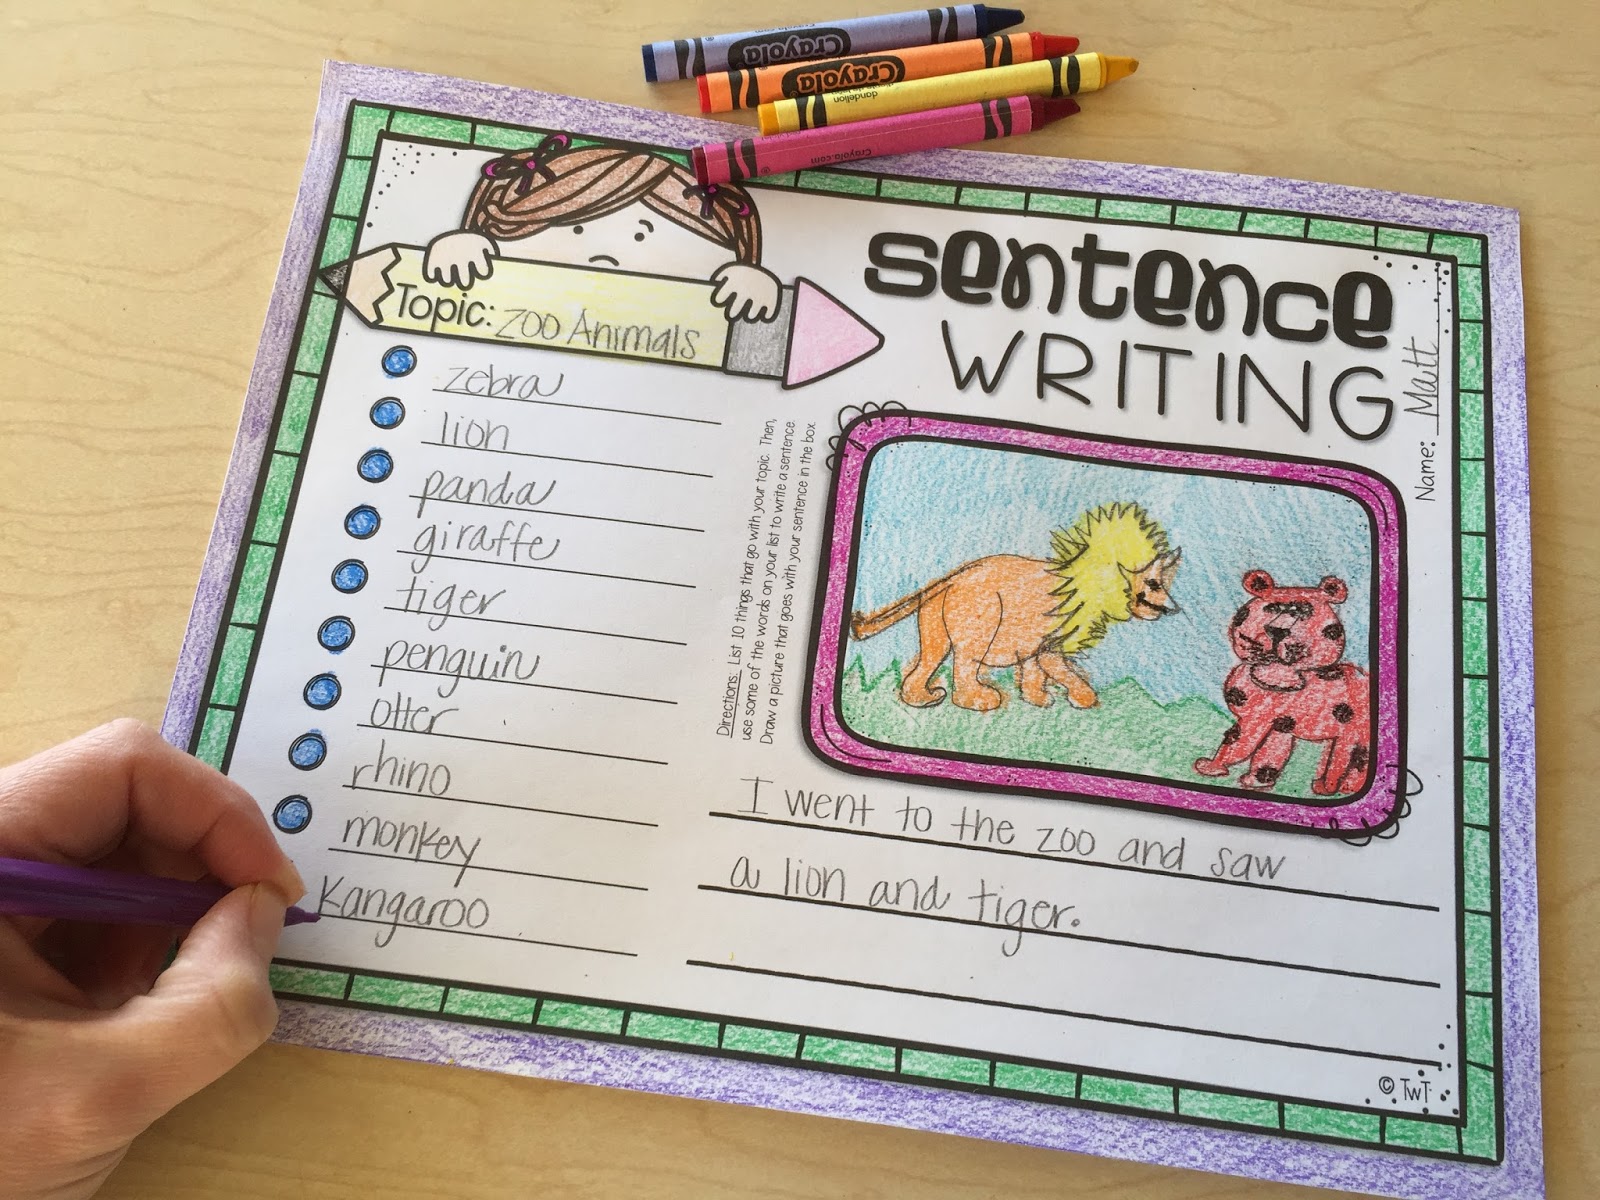 Crayola.com
Crayola
Crayola
dandelion
Crayola.com
Topic: Zoo Animals
zebra
lion
panda
giraffe
tiger
penguin
otter
rhino
monkey
Kangaroo
sentence
WRITING
Name: Matt
Directions: List 10 things that go with your topic. Then,
use some of the words on your list to write a sentence.
Draw a picture that goes with your sentence in the box.
I went to the zoo and saw
a lion and tiger.
© TwT